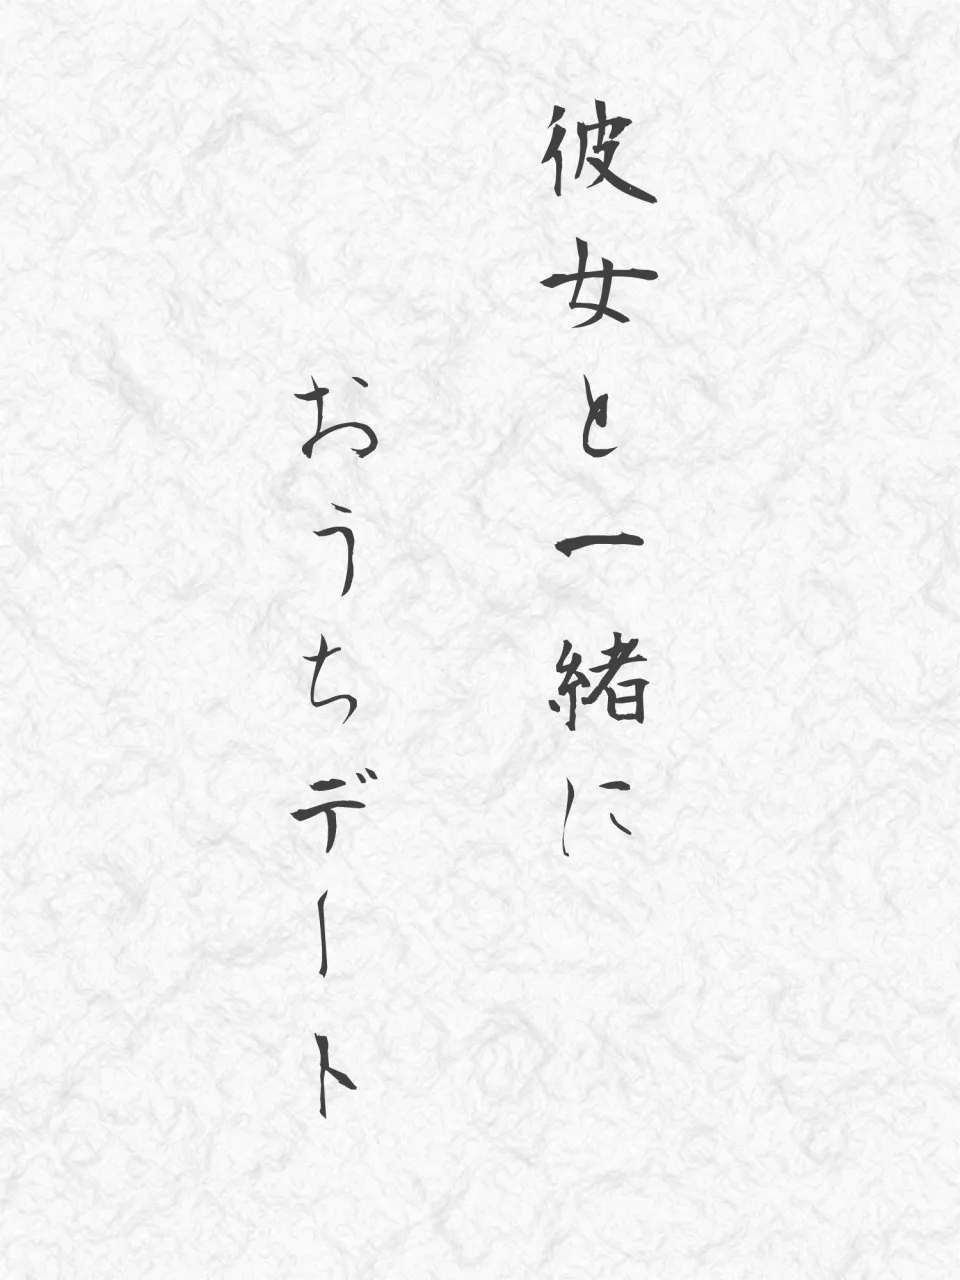 彼女と一緒に
おうちデート